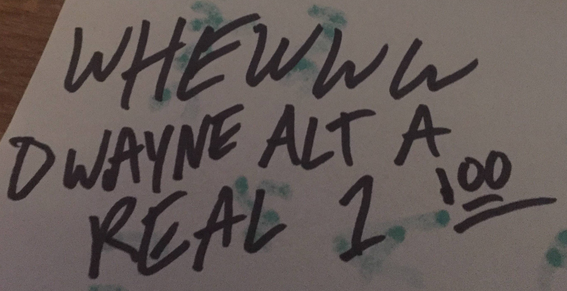 WHEWWW
DWAYNE ALT A
REAL 1 100